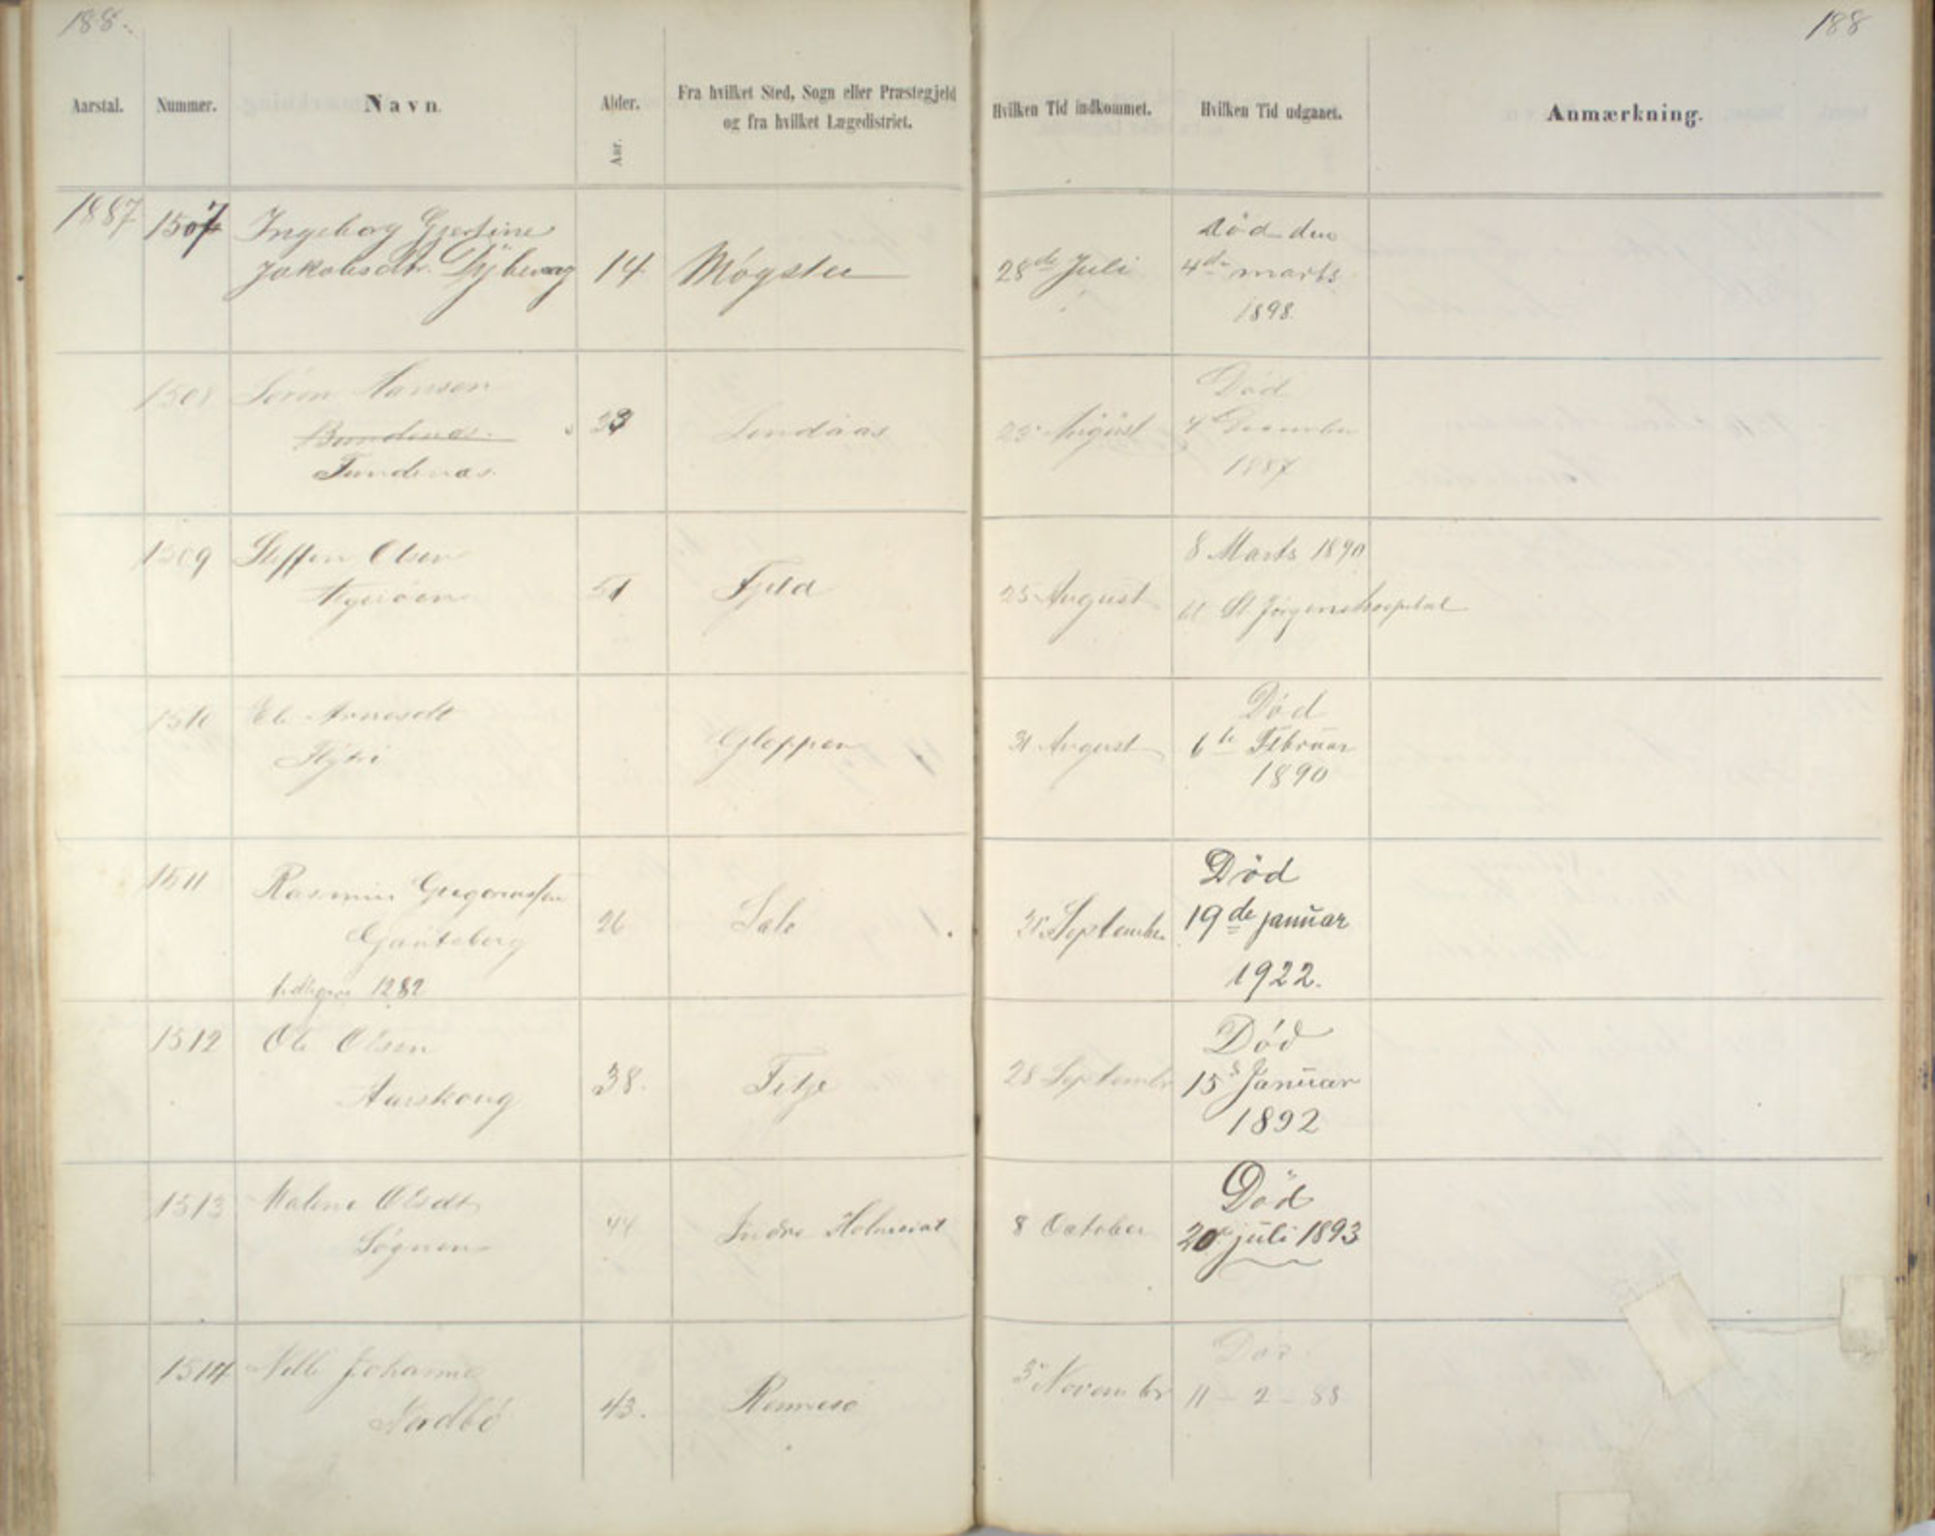 188.
188
Aarstal.
Nummer.
Navn.
Alder.
Aar.
Fra hvilket Sted, Sogn eller Præstegjeld
og fra hvilket Lægedistrict.
Hvilken Tid indkommet.
Hvilken Tid udgaaet.
Anmærkning.
1887
1507
Ingeborg Gjertine
Jakobsdtr.
14
28de Juli
Død den
4de marts
1898.
1508
Søren Hansen
Tundenæs
Lindaas
25 August
Død
4 December
1887
1509
Steffen Olsen
51
Fjeld
25 August
8 Marts 1890
til St Jørgenshospital
1510
Arnesdt
Gloppen
31 August
Død
6te Februar
1890
1511
26
September
Død
19de januar
1922.
1282
1512
Ole Olsen
Aarskoug
38.
Fitje
28 Septembr
Død
15de Januar
1892
1513
Malene Olsdt
Søgnen
44
Indre Holmedal
8 October
Død
20de juli 1893
1514
Johanne
Nordbø
43.
Rennesø
3 Novembr
Død
11 - 2 - 88